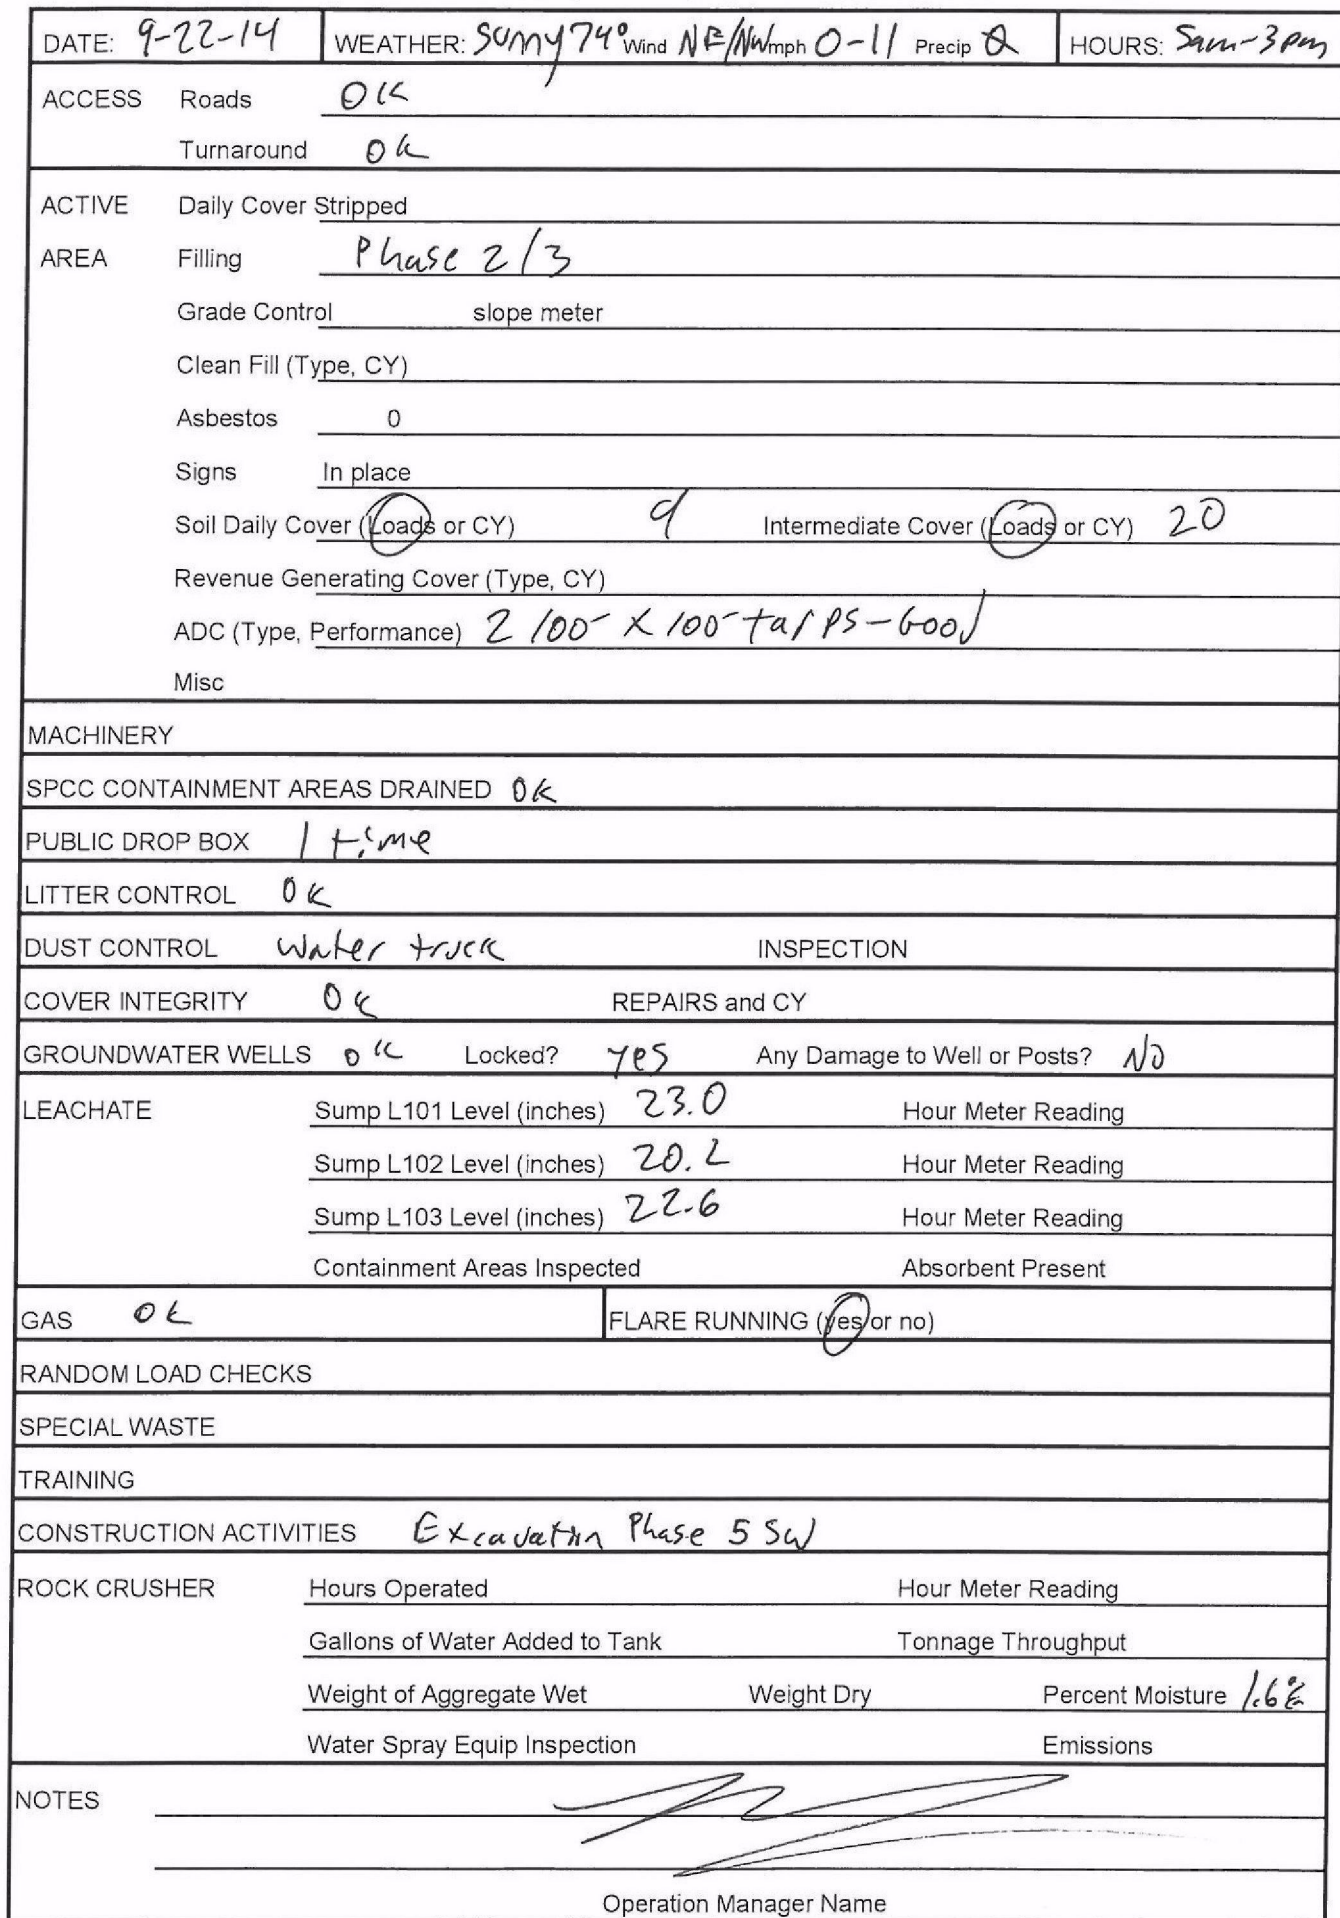 DATE: 9-22-14 WEATHER: Sunny 74° Wind NE/NW mph 0-11 Precip 0 HOURS: 5am-3pm
ACCESS Roads OK
Turnaround OK
ACTIVE Daily Cover Stripped
AREA Filling Phase 2/3
Grade Control slope meter
Clean Fill (Type, CY)
Asbestos 0
Signs In place
Soil Daily Cover (Loads or CY) 9 Intermediate Cover (Loads or CY) 20
Revenue Generating Cover (Type, CY)
ADC (Type, Performance) 2 100- x 100- tarps - Good
Misc
MACHINERY
SPCC CONTAINMENT AREAS DRAINED OK
PUBLIC DROP BOX 1 time
LITTER CONTROL OK
DUST CONTROL Water truck INSPECTION
COVER INTEGRITY OK REPAIRS and CY
GROUNDWATER WELLS OK Locked? yes Any Damage to Well or Posts? NO
LEACHATE Sump L101 Level (inches) 23.0 Hour Meter Reading
Sump L102 Level (inches) 20.2 Hour Meter Reading
Sump L103 Level (inches) 22.6 Hour Meter Reading
Containment Areas Inspected Absorbent Present
GAS OK FLARE RUNNING (yes or no)
RANDOM LOAD CHECKS
SPECIAL WASTE
TRAINING
CONSTRUCTION ACTIVITIES Excavation Phase 5 SW
ROCK CRUSHER Hours Operated Hour Meter Reading
Gallons of Water Added to Tank Tonnage Throughput
Weight of Aggregate Wet Weight Dry Percent Moisture 1.6%
Water Spray Equip Inspection Emissions
NOTES
Operation Manager Name